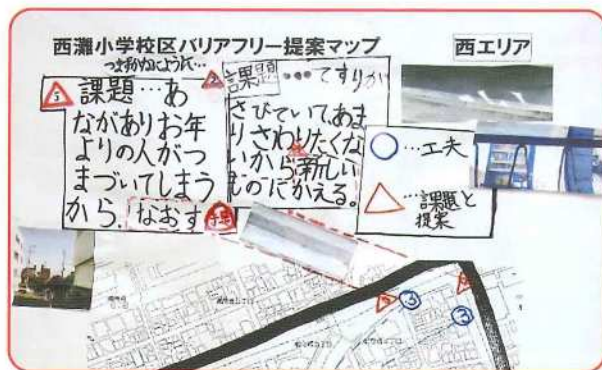 西灘小学校区バリアフリー提案マップ
西エリア
つまずかないように…
課題…あ
ながありお年
よりの人がつ
まづいてしまう
から、なおす
課題…てすりが
さびていて、あま
りさわりたくな
いから新しい
ものにかえる。
…工夫
…課題と
提案
③
③